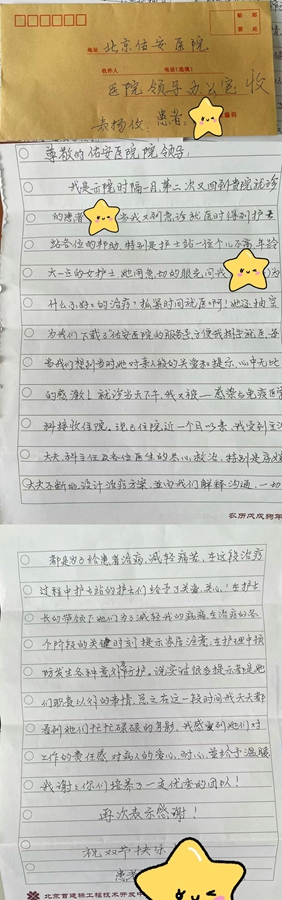 邮票
贴处
地址 北京佑安医院
收件人 电话(选填)
医院领导办公室 收
表扬信 患者
邮编码
尊敬的佑安医院院领导:
我是出院时隔一月第二次又回到贵院就诊
的患者 当我又到急诊就医时得到护士
站各位的帮助,特别是护士站一位个儿不高,年龄
大一点的女护士她用亲切的眼光问我 为
什么不好好的治疗?抓紧时间就医啊!她还抽空
为我们下载了佑安医院的服务号,方便我挂号就医等
当我们想到当时她对亲人般的关爱和提示,心中无比
的感激!就诊当天下午,我又被一感染与免疫医学
科接收住院。现已住院近一个月以来,我受到主治
大夫、科主任及各位医生的尽心救治,特别是
大夫不断的设计治疗方案,并向我们解释沟通,一切
农历戊戌狗年
都是为了给患者治病,减轻痛苦,在这段治疗
过程中护士站的护士们给予了关爱、关心!在护士
长的带领下她们为了减轻我的病痛,在治疗的各
个阶段的关键时刻提示家属注意,在护理中预
防发生各种意外防护。说实话很多提示都是她
们职责以外的事情,总之在这一段时间我天天都
看到她们忙忙碌碌的身影,我感受到她们对
工作的责任感,对病人的爱心、耐心,并给予温暖
我谢谢你们培养了一支优秀的团队!
再次表示感谢!
祝双节快乐
患者
北京首建桃工程技术开发中